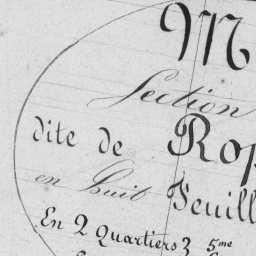 M
Section
dite de Rop
en Huit Feuill
En 2 Quartiers 3 5me